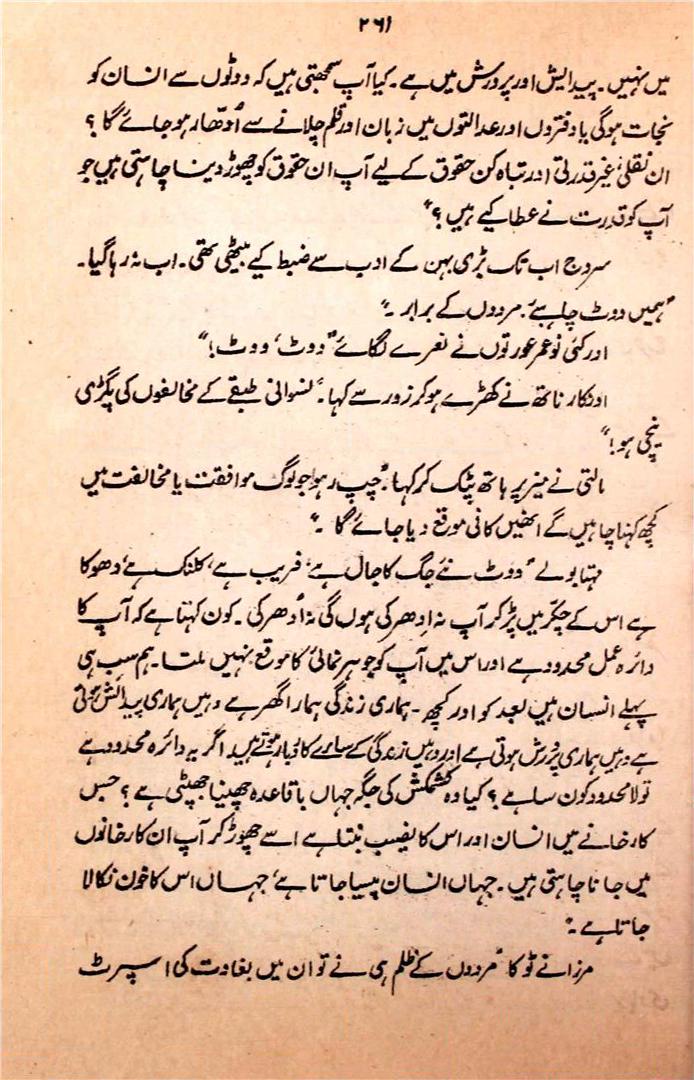 ۲۶۱
میں نہیں۔ پیدایش اور پرورش میں ہے۔ کیا آپ سمجھتی ہیں کہ ووٹوں سے انسان کو
نجات ہوگی یا دفتروں اور عدالتوں میں زبان اور قلم چلانے سے اُودّھار ہو جائے گا؟
ان نقلی، غیر قدرتی اور تباہ کن حقوق کے لیے آپ ان حقوق کو چھوڑ دینا چاہتی ہیں جو
آپ کو قدرت نے عطا کیے ہیں؟"
سروج اب تک بڑی بہن کے ادب سے ضبط کیے بیٹھی تھی۔ اب نہ رہا گیا۔
"ہمیں ووٹ چاہیے، مردوں کے برابر۔"
اور کئی نو عمر عورتوں نے نعرے لگائے "ووٹ، ووٹ!"
اونکار ناتھ نے کھڑے ہو کر زور سے کہا۔ "نسوانی طبقے کے مخالفوں کی پگڑی
نیچی ہو!"
مالتی نے میز پر ہاتھ پٹک کر کہا۔ "چپ رہو! جو لوگ موافقت یا مخالفت میں
کچھ کہنا چاہیں گے انھیں کافی موقع دیا جائے گا۔"
مہتا بولے "ووٹ نئے جگ کا جال ہے، فریب ہے، کلنک ہے، دھوکا
ہے اس کے چکر میں پڑ کر آپ نہ اِدھر کی ہوں گی نہ اُدھر کی۔ کون کہتا ہے کہ آپ کا
دائرہ عمل محدود ہے اور اس میں آپ کو جوہر نمائی کا موقع نہیں ملتا۔ ہم سب ہی
پہلے انسان ہیں بعد کو اور کچھ۔ ہماری زندگی ہمارا گھر ہے وہیں ہماری پیدائش ہوتی
ہے وہیں ہماری پرورش ہوتی ہے اور وہیں زندگی کے سارے کاروبار ہوتے ہیں۔ اگر یہ دائرہ محدود ہے
تو لا محدود کون سا ہے؟ کیا وہ کشمکش کی جگہ جہاں باقاعدہ چھینا جھپٹی ہے؟ جس
کارخانے میں انسان اور اس کا نصیب بنتا ہے اسے چھوڑ کر آپ ان کارخانوں
میں جانا چاہتی ہیں۔ جہاں انسان پیسا جاتا ہے، جہاں اس کا خون نکالا
جاتا ہے۔"
مرزا نے ٹوکا "مردوں کے ظلم ہی نے تو ان میں بغاوت کی اسپرٹ